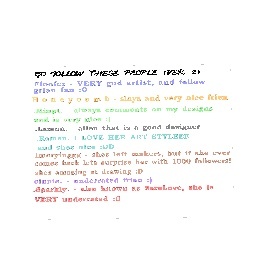 GO FOLLOW THESE PEOPLE (VER. 2)
- VERY god artist, and fellow
grian fan :O
H o n e y c o m b - slaya and very nice frien
always comments on my designs
and is very nice :)
- alien that is a good designer
I LOVE HER ART STYLEEE
and shes nice :DD
- shes left makers, but if she ever
comes back lets surprise her with 1000 followers!
shes amazing at drawing :D
- underrated frien :)
.Sparkly. - also known as she is
VERY underrated :O